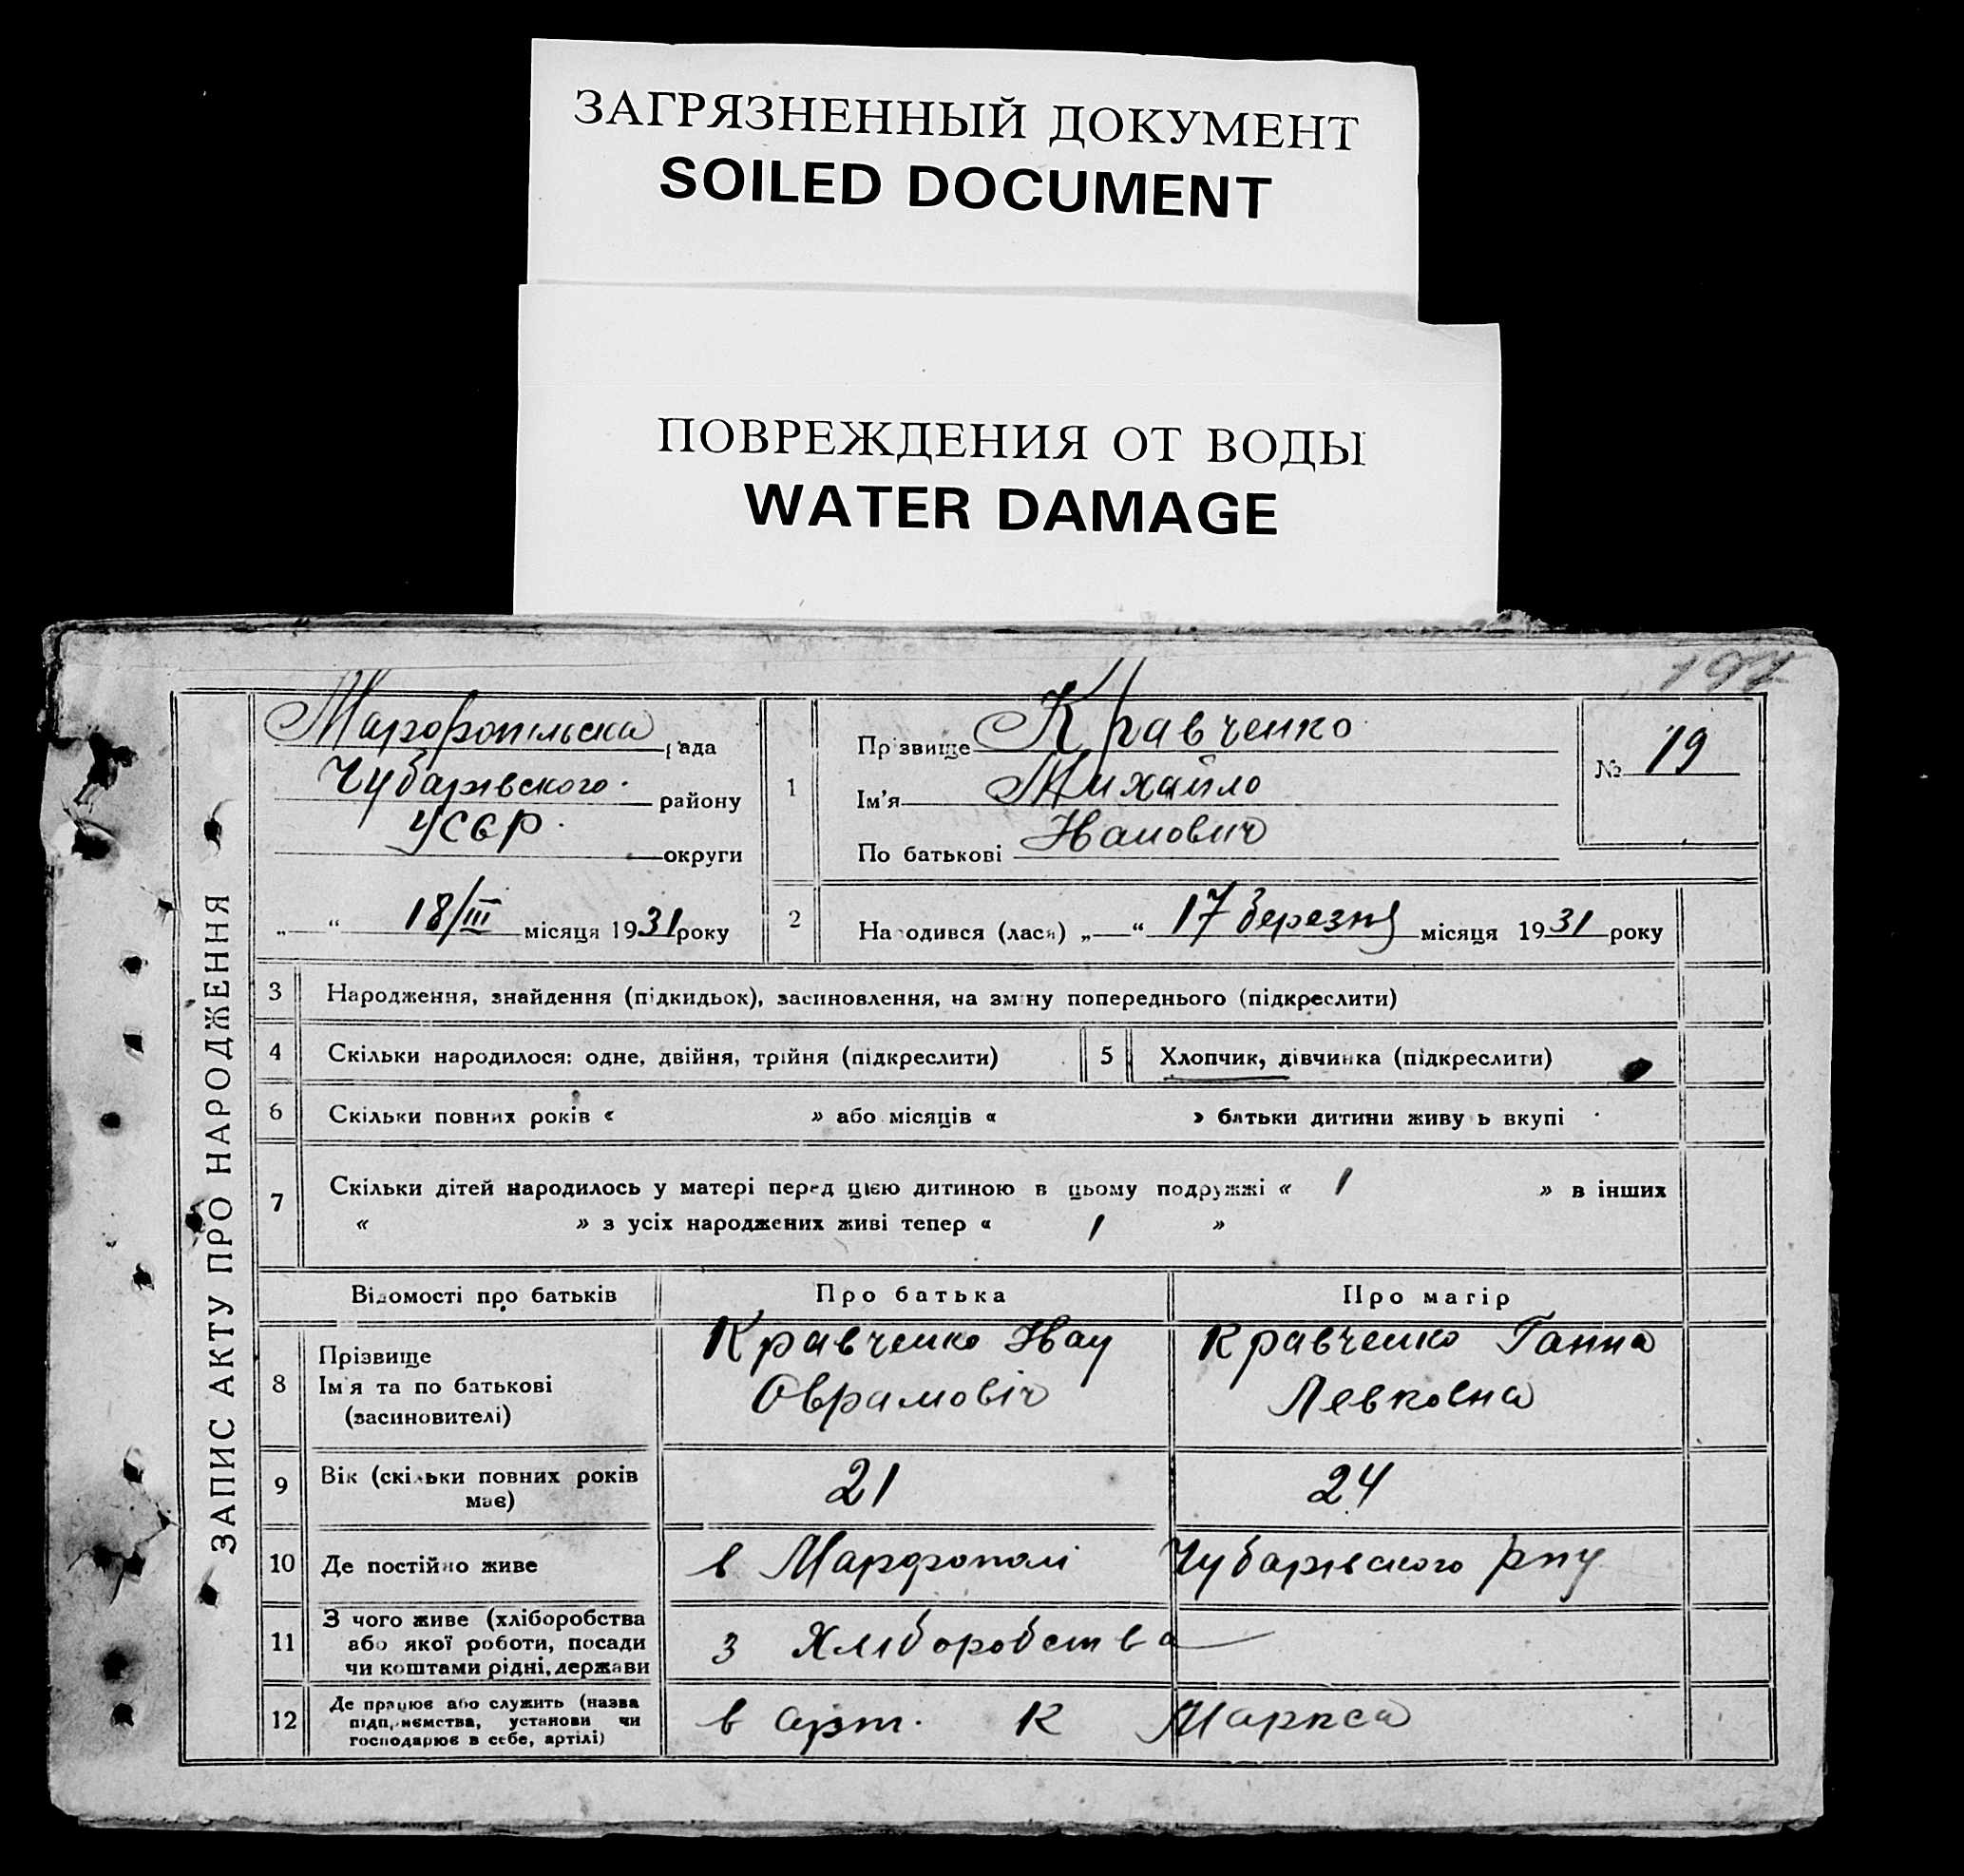 ЗАГРЯЗНЕННЫЙ ДОКУМЕНТ
SOILED DOCUMENT
ПОВРЕЖДЕНИЯ ОТ ВОДЫ
WATER DAMAGE
197
ЗАПИС АКТУ ПРО НАРОДЖЕННЯ
Марфопільська рада
Чубарівського району
УСРР округи
„ “ 18/III місяця 1931 року
1
Прізвище Кравченко
Ім'я Михайло
По батькові Іванович
№ 19
2 Народився (лася) „ “ 17 березня місяця 1931 року
3 Народження, знайдення (підкидьок), засиновлення, на зміну попереднього (підкреслити)
4 Скільки народилося: одне, двійня, трійня (підкреслити) 5 Хлопчик, дівчинка (підкреслити)
6 Скільки повних років « » або місяців « » батьки дитини живуть вкупі
7 Скільки дітей народилось у матері перед цією дитиною в цьому подружжі « 1 » в інших
« » з усіх народжених живі тепер « 1 »
Відомості про батьків Про батька Про матір
8 Прізвище Ім'я та по батькові (засиновителі)
Кравченко Іван Оврамовіч
Кравченко Ганна Левковна
9 Вік (скільки повних років має) 21 24
10 Де постійно живе в Марфополі Чубарівського р-ну
11 З чого живе (хліборобства або якої роботи, посади чи коштами рідні, держави з Хліборобства
12 Де працює або служить (назва підприємства, установи чи господарює в себе, артілі) в арт. К Маркса